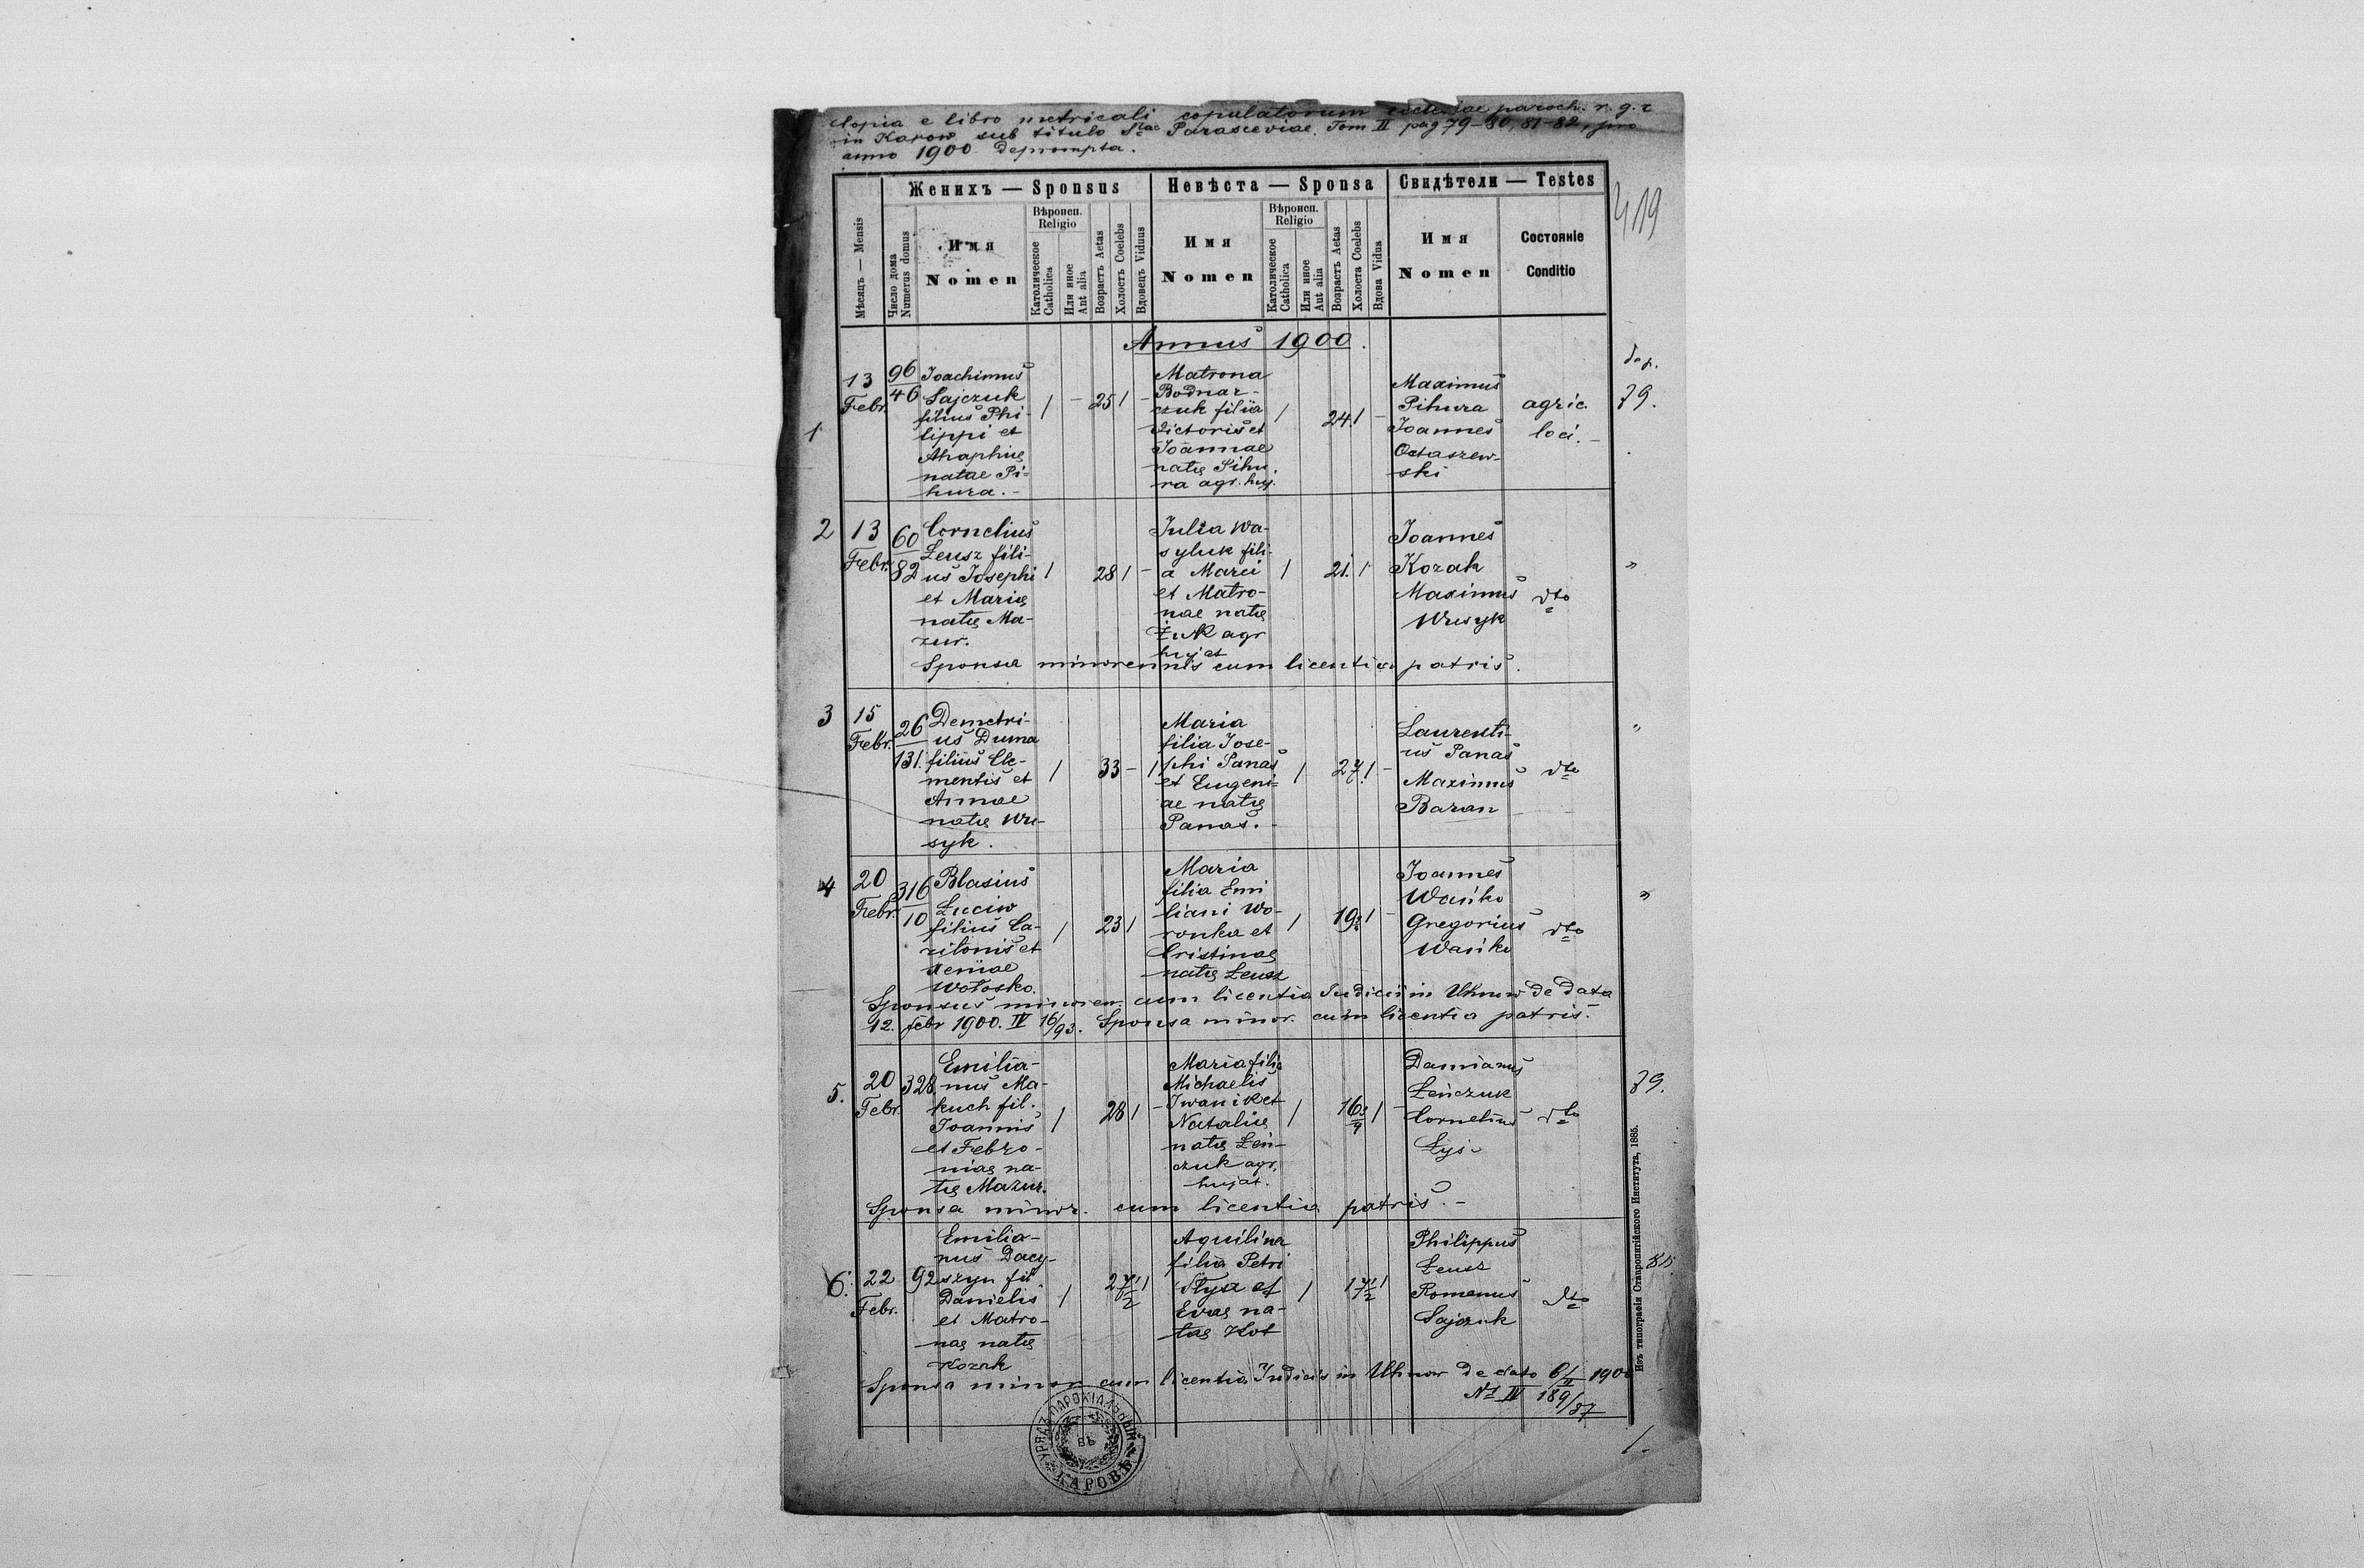 Copia e libro metricali copulatorum ecclesiae paroch. r. g. c
in Karow sub titulo Stae Parasceviae. Tom II pag 79-80, 81-82, pro
anno 1900 deprompta.
419
Женихъ — Sponsus
Невѣста — Sponsa
Свидѣтели — Testes
Мѣсяцъ — Mensis
Число дома
Numerus domus
Имя
Nomen
Вѣроисп.
Religio
Католическое
Catholica
Или иное
Aut alia
Возрастъ Aetas
Холостъ Coelebs
Вдовецъ Viduus
Имя
Nomen
Вѣроисп.
Religio
Католическое
Catholica
Или иное
Aut alia
Возрастъ Aetas
Холоста Coelebs
Вдова Vidua
Имя
Nomen
Состояніе
Conditio
Annus 1900.
1
13
Febr.
96
46
Joachimus
Sajczuk
filius Phi-
lippi et
Ahaphię
natae Pi-
hura.-
1 - 25 1 -
Matrona
Bodnar-
czuk filia
Victoris et
Joannae
natę Pihu-
ra agr. huj.
1 24 1 -
Maximus
Pihura
Joannes
Ostaszew-
ski
agric.
loci.-
79.
2
13
Febr.
60
82
Cornelius
Łeusz fili-
us Josephi
et Marię
natę Ma-
zur.
1 28 1 -
Julia Wa-
syluk fili-
a Marci
et Matro-
nae natę
Żuk agr
hujat
1 21. 1
Joannes
Kozak
Maximus
Wusyk
dto
"
Sponsa minorennis cum licentia patris.
3
15
Febr.
26
131.
Demetri-
us Duma
filius Cle-
mentis et
Annae
natę Wu-
syk.
1 33 - 1
Maria
filia Jose-
phi Panas
et Eugeni-
ae natę
Panas.-
1 27 1 -
Laurenti-
us Panas
Maximus
Baran
dto
"
4
20
Febr.
316
10
Blasius
Łuciw
filius Ca-
ritonis et
Xeniae
Wołosko.
1 23 1
Maria
filia Emi
liani Wo-
ronka et
Cristinae
natę Łeusz
1 19 1 -
Joannes
Wańko
Gregorius
Wańko
dto
"
Sponsus minoren. cum licentia Judicii in Uhnow de data
12. febr 1900. IV 16/93. Sponsa minor. cum licentia patris.
5.
20
Febr.
328
Emilia-
nus Ma-
kuch fil.
Joannis
et Febro-
niae na-
tę Mazur.
1 28 1 -
Maria filia
Michaelis
Iwanik et
Natalię
natę Łeń-
czuk agr.
hujat.
1 16 3/4 1 -
Damianus
Łeńczuk
Cornelius
Łys
dto
79.
Sponsa minor. cum licentia patris.-
6.
22
Febr.
92
Emilia-
nus Dacy-
szyn fil.
Danielis
et Matro-
nae natę
Kozak
1 27 1/2 1
Aquilina
filia Petri
et
Evae na-
tae Kot
1 17 1/2 1
Philippus
Łeusz
Romanus
Sajczuk
dto
80.
Sponsa minor cum licentia Judicii in Uhnow de dato 6/II 1900
No IV 189/37
1.
Изъ типографіи Ставропигійского Института, 1885.
УРЯДЪ ПАРОХІАЛЬНЫЙ
ВЪ
КАРОВѢ